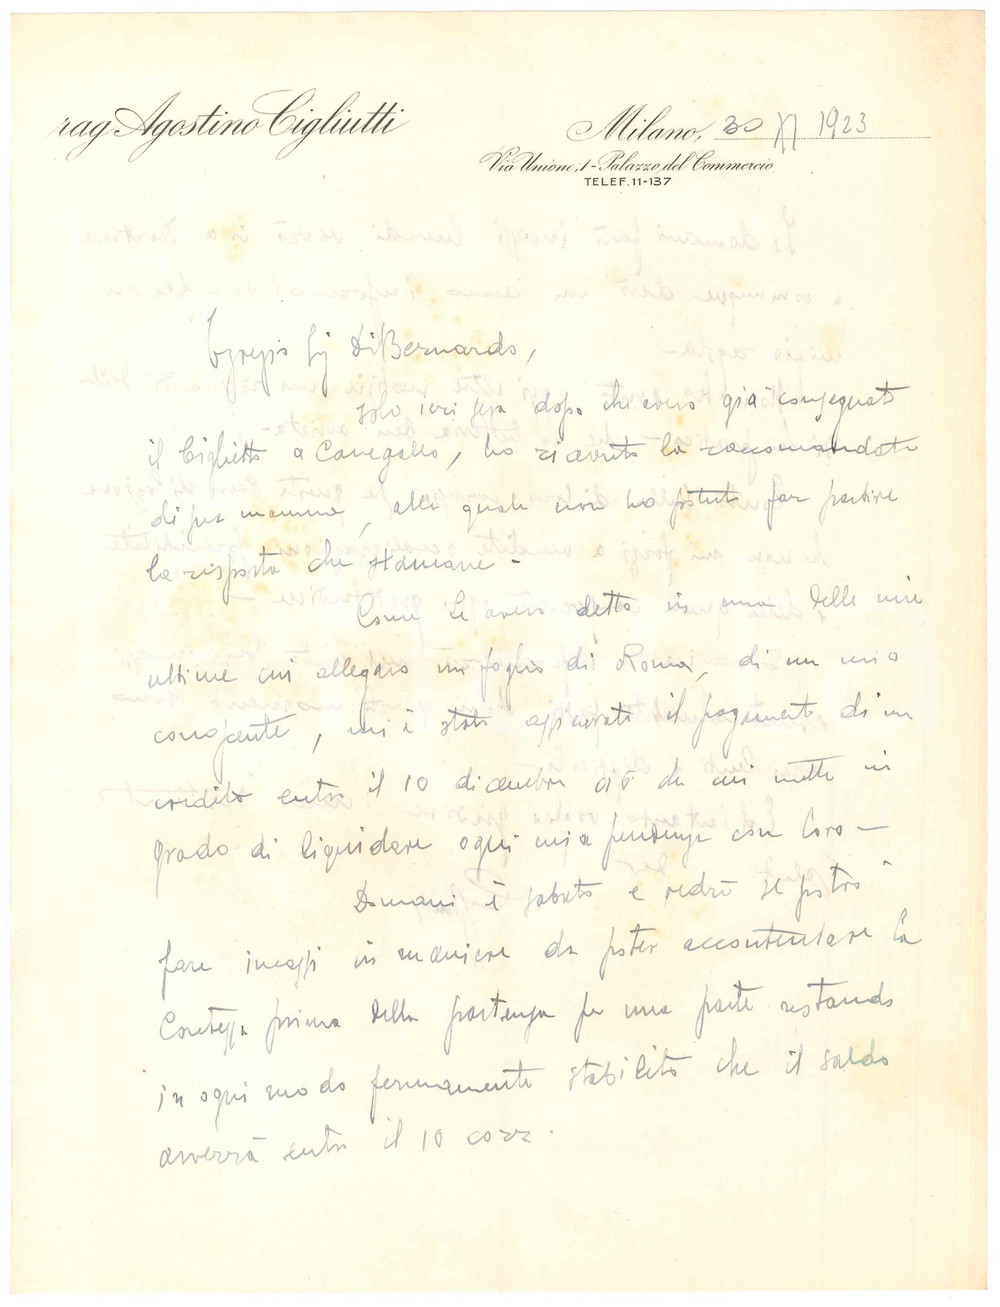 rag Agostino Cigliutti
Milano, 30 XI 1923
Via Unione, 1 - Palazzo del Commercio
TELEF. 11-137
Egregio Sig DiBernardo,
solo ieri sera dopo che avevo già consegnato
il biglietto a Canegallo, ho ricevuto la raccomandata
di sua mamma, alla quale non ho potuto far partire
la risposta che stamane -
Come Le avevo detto in una delle mie
ultime cui allegavo un foglio di Roma, di un mio
, mi è stato assicurato il pagamento di un
credito entro il 10 dicembre ciò da cui mette in
grado di liquidare ogni mia pendenza con loro -
Domani è sabato e vedrò se potrò
fare incassi in maniera da poter accontentare la
Contessa prima della partenza per una parte restando
in ogni modo fermamente stabilito che il saldo
avverrà entro il 10 corr.